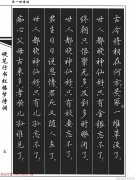 古今将相在何方？荒冢一堆草没了。
世人都晓神仙好，只有金银忘不了！
终朝只恨聚无多，及到多时眼闭了。
世人都晓神仙好，只有姣妻忘不了！
君生日日说恩情，君死又随人去了。
世人都晓神仙好，只有儿孙忘不了！
痴心父母古来多，孝顺儿孙谁见了？
硬笔行书红楼梦诗词
五